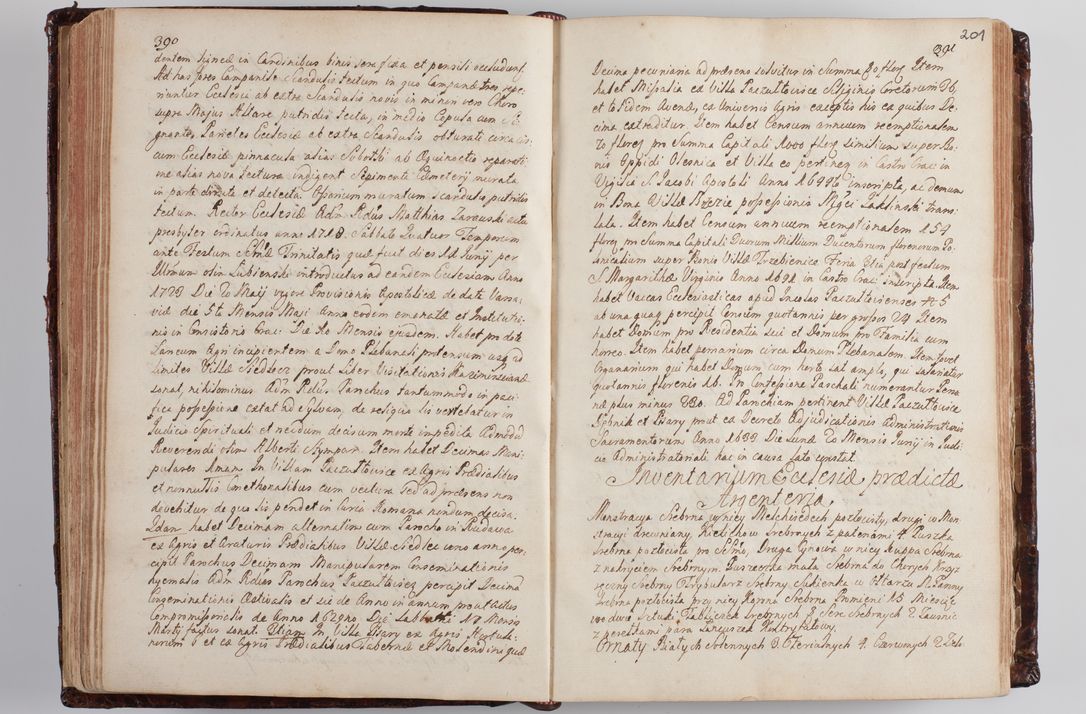 390
dentem lignea in Cardinibus binis sera fixa et pensili occludunt.
Ad has fores Campanile Scandulis tectum in quo Campanæ tres repe-
riuntur Ecclesia ab extra Scandulis novis in minori vero Choro
supra Majus Altare putridis tecta, in medio Cupula cum Si-
gnante, Parietes Ecclesiæ ab extra Scandulis obturati circa
cum Ecclesiæ pinnacula alias Soboteki ab Æquinoctio reparati
me alias nova tectura indigent Sepimenta Cæmeterij murata
in parte diruta et detecta. Ossarium muratum scandulis putridis
tectum. Rector Ecclesiæ Adm. Rdus Matthias Larouski
presbyter ordinatus anno 1718. Sabbato Quatuor Temporum
ante Festum SSmæ Trinitatis quæ fuit dies 11 Junij per
Illmum olim Łubienski introductus ad eandem Ecclesiam Anno
1723 Die 20 Maij vigore Provisionis Apostolicæ de data Varsa-
viæ die 5ta Mensis Maji Anno eodem emanatæ et Institutio-
nis in Consistorio Crac: Die 10 Mensis ejusdem. Habet pro dote
Laneum Agri incipientem a Domo Plebanali protensum usq ad
limites Villæ Siedlecz prout liber Visitationis Razimirsciana
sonat, nihilominus Adm Rdus Parochus tantummodo in paci-
fica possessione extat ad sylvam, de reliquo lis vertebatur in
Judicio Spirituali et necdum decisum morte impedita Admodum
Reverendi olim Alberti Nympan. Item habet Decimas Mani-
pulares Aman. In Villam Paczułtowice ex Agris Prædialibus
et nonnullis Cmethonalibus cum vectura sed ad præsens non
devehitur de quo lis pendet in Curia Romana nondum decisa.
Idem habet Decimam alternatim cum Parocho in Rudawa
ex Agris et Araturis Prædialibus Villæ Siedlec uno anno per-
cipit Parochus Decimam Manipularem Inseminationis
hyemalis Adm Rdus Parochus Paczułtovice percipit Decimam
Inseminationis Æstivalis et sic de Anno in annum prout actus
Compromissorialis de Anno 1629no. Die Sabbathi 17 Mensis
Martij factus sonat. Etiam in Villa Psary ex Agris Hortula-
norum 6 et ex Agris Prædialibus Tabernæ et Molendini quæ
391
201
Decima pecuniaria ad præsens solvitur in Summa 30 flor. Item
habet Missalia ex Villa Paczułtovice Siliginis Coretorum 16,
et totidem Avenæ, ex Universis Agris exceptis his ex quibus De-
cima extraditur. Item habet Censum annuum reemptionalem
70 floren pro Summa Capitali 1000 flor similium super Bo-
nis Oppidi Olesnica et Villa eo pertinen in Castro Crac in
Vigilia S. Jacobi Apostoli Anno 1698vo inscripta, ac demum
in Bona Villæ Brzezie possessionis Mgci Jaklinski trans-
lata. Item habet Censum annuum reemptionalem 154
floren pro Summa Capitali Duorum Millium Ducentorum florenorum Po-
lonicalium super Bonis Villæ Trzebienice Feria IIda post festum
S. Margarithæ Virginis Anno 1691 in Castro Crac: Inscripta. Item
habet Vaccas Ecclesiasticas apud Incolas Paczułtovienses 15
ab una quaq percipit Censum quotannis per grossos 24 Item
habet Domum pro Residentia sui et Domum pro Familia cum
horreo. Item habet pomarium circa Domum Plebanalem. Item fovet
Organarium qui habet Domum cum horto sat amplo, qui salariatur
quotannis florenis 16. In Confessione Paschali numerantur Perso-
næ plus minus 280. Ad Parochiam pertinent Villæ Paczułtowice
Dębnik et Psary prout ex Decreto Adjudicationis Administrationis
Sacramentorum Anno 1633 Die Lunæ 20 Mensis Junij in Judi-
cio Administratoriali hac in causa lato constat.
Inventarium Ecclesiæ prædictæ
Argenteria
Monstracya Srebrna w niey Melchisedech pozłocisty, drugi w Mon
stracyi drewniany. Kielichow Srebrnych z patenami 4 Puszka
Srebrna pozłocista pro SSmo, Druga Cynowa w niey kuppa Srebrna
z nakryciem Srebrnym. Puszeczka mała Srebrna do Chorych Krzyz
ręczny Srebrny Trybularz Srebrny Sukienka w Ołtarzu N. Panny
Srebrna pozłocista przy niey Korona Srebrna Promieni 15 Miesiąc
we dwie Sztuki Tabliczek srebrnych 8 Serc Srebrnych 2 Zausnic
z perełkami para Łancuszek Alostryfikowy.
Ornaty Białych solennych 3. Ezerialnych 4. Czerwonych 2 Zielo-